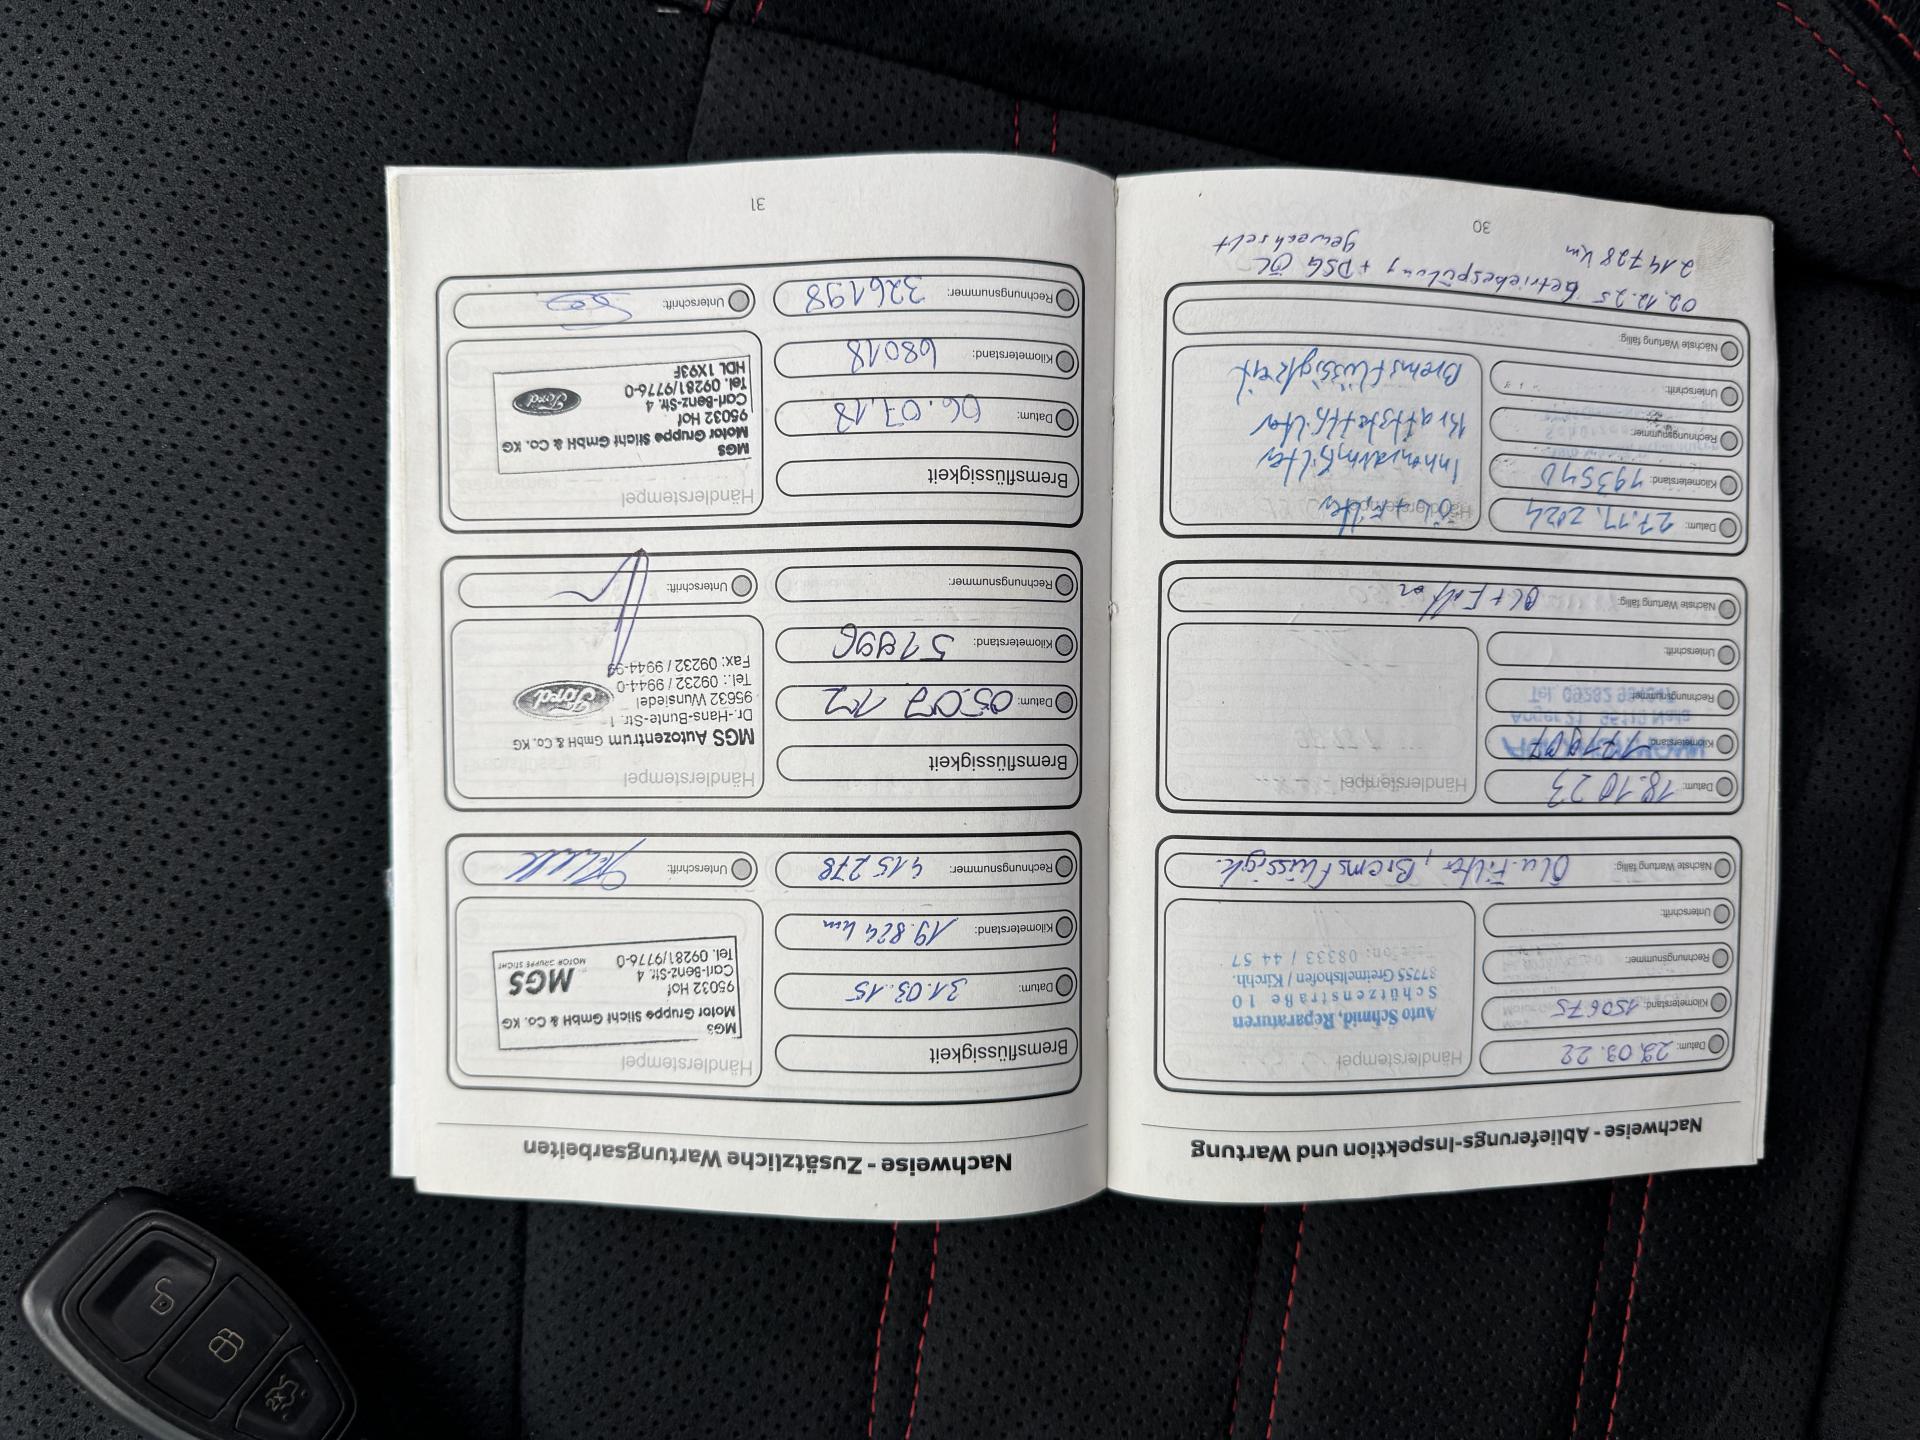 Nachweise - Ablieferungs-Inspektion und Wartung
Datum: 29.03.22
Kilometerstand: 150675
Rechnungsnummer:
Unterschrift:
Händlerstempel
Auto Schmid, Reparaturen
Schützenstraße 10
87755 Greimeltshofen / Kirchh.
Telefon: 08333 / 44 57
Nächste Wartung fällig: Öl u. Filter, Bremsflüssigk.
Datum: 18.10 23
Kilometerstand: 171907
Rechnungsnummer:
Unterschrift:
Händlerstempel
Nächste Wartung fällig: ÖL +
Datum: 27.11.2024
Kilometerstand: 193540
Rechnungsnummer:
Unterschrift:
Händlerstempel
Öl + Filter
Innenraumfilter
Kraftstofffilter
Bremsflüssigkeit
Nächste Wartung fällig:
02.12.25 Getriebespülung + DSG ÖL
214728 km gewechselt
30
Nachweise - Zusätzliche Wartungsarbeiten
Bremsflüssigkeit
Datum: 31.03.15
Kilometerstand: 19.824 km
Rechnungsnummer: 415278
Händlerstempel
MGS
Motor Gruppe Sticht GmbH & Co. KG
95032 Hof
Carl-Benz-Str. 4
Tel. 09281/9776-0
MGS
MOTOR GRUPPE STICHT
Unterschrift:
Bremsflüssigkeit
Datum: 05.07 17
Kilometerstand: 51996
Rechnungsnummer:
Händlerstempel
MGS Autozentrum GmbH & Co. KG
Dr.-Hans-Bunte-Str. 1
95632 Wunsiedel
Tel.: 09232 / 9944-0
Fax: 09232 / 9944-99
Ford
Unterschrift:
Bremsflüssigkeit
Datum: 06.07.18
Kilometerstand: 68018
Rechnungsnummer: 326198
Händlerstempel
MGS
Motor Gruppe Sticht GmbH & Co. KG
95032 Hof
Carl-Benz-Str. 4
Tel. 09281/9776-0
HDL 1X93F
Ford
Unterschrift:
31
2x